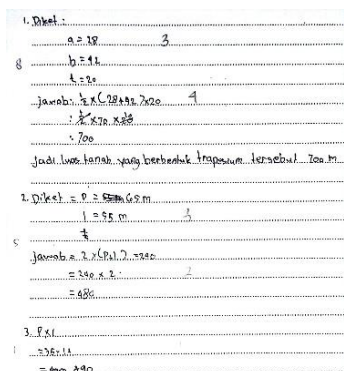 1. Diket :
a = 28 3
8 b = 42
t = 20
jawab : ½ x ( 28+42 ) x 20 4
: ½ x 70 x 20
: 700
Jadi luas tanah yang berbentuk trapesium tersebut 700 m
2. Diket = P = 65 m
l = 55 m 3
t
5
Jawab = 2 x (P+l) = 240
= 240 x 2 2
= 480
3. P x l
1